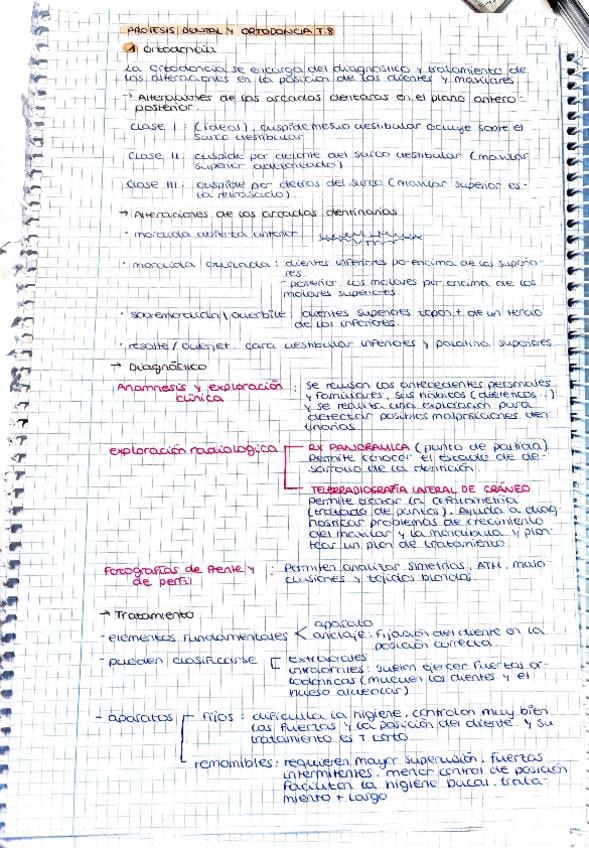 PROTESIS DENTAL Y ORTODONCIA T.8
1 Ortodoncia
La Ortodoncia se encarga del diagnostico y tratamiento de
las alteraciones en la posición de los dientes y maxilares
→ Alteraciones de las arcadas dentarias en el plano antero-
posterior.
Clase I : (ideal), cuspide mesio vestibular ocluye sobre el
surco vestibular
Clase II : cuspide por delante del surco vestibular (maxilar
superior adelantado)
Clase III : cuspide por detras del surco (maxilar superior es-
ta retrasado)
→ Alteraciones de las arcadas dentinarias
· mordida abierta anterior
· mordida cruzada : dientes inferiores por encima de los superio-
res.
- posterior. los molares por encima de los
molares superiores
· sobremordida / overbite : dientes superiores tapan + de un tercio
de los inferiores.
· resalte / overjet. cara vestibular inferiores y palatina superiores
→ Diagnóstico
Anamnesis y exploración : Se revisan los antecedentes personales
clinica y familiares, sus hábitos
y se realiza una exploración para
detectar posibles malposiciones den-
tinarias
exploración radiologica RX PANORÁMICA (punto de partida)
Permite conocer el estado de de-
sarrollo de la dentición.
TELERRADIOGRAFÍA LATERAL DE CRÁNEO
permite trazar la cefalometria
(trazado de puntos). Ayuda a diag-
nosticar problemas de crecimiento
del maxilar y la mandibula y plan-
tear un plan de tratamiento
Fotografias de frente y : Permiten analizar simetrias, ATM, malo-
de perfil clusiones y tejidos blandos.
→ Tratamiento
aparato
- elementos fundamentales < anclaje : fijación del diente en la
posición correcta
- pueden clasificarse [ extraorales
intraorales : suelen ejercer fuerzas or-
todonticas (mueven los dientes y el
hueso alveolar)
- aparatos fijos : dificulta la higiene, controlan muy bien
las fuerzas y la posición del diente y su
tratamiento es + corto
removibles : requieren mayor supervisión, fuerzas
intermitentes, menor control de posición
facilitan la higiene bucal. trata-
miento + largo